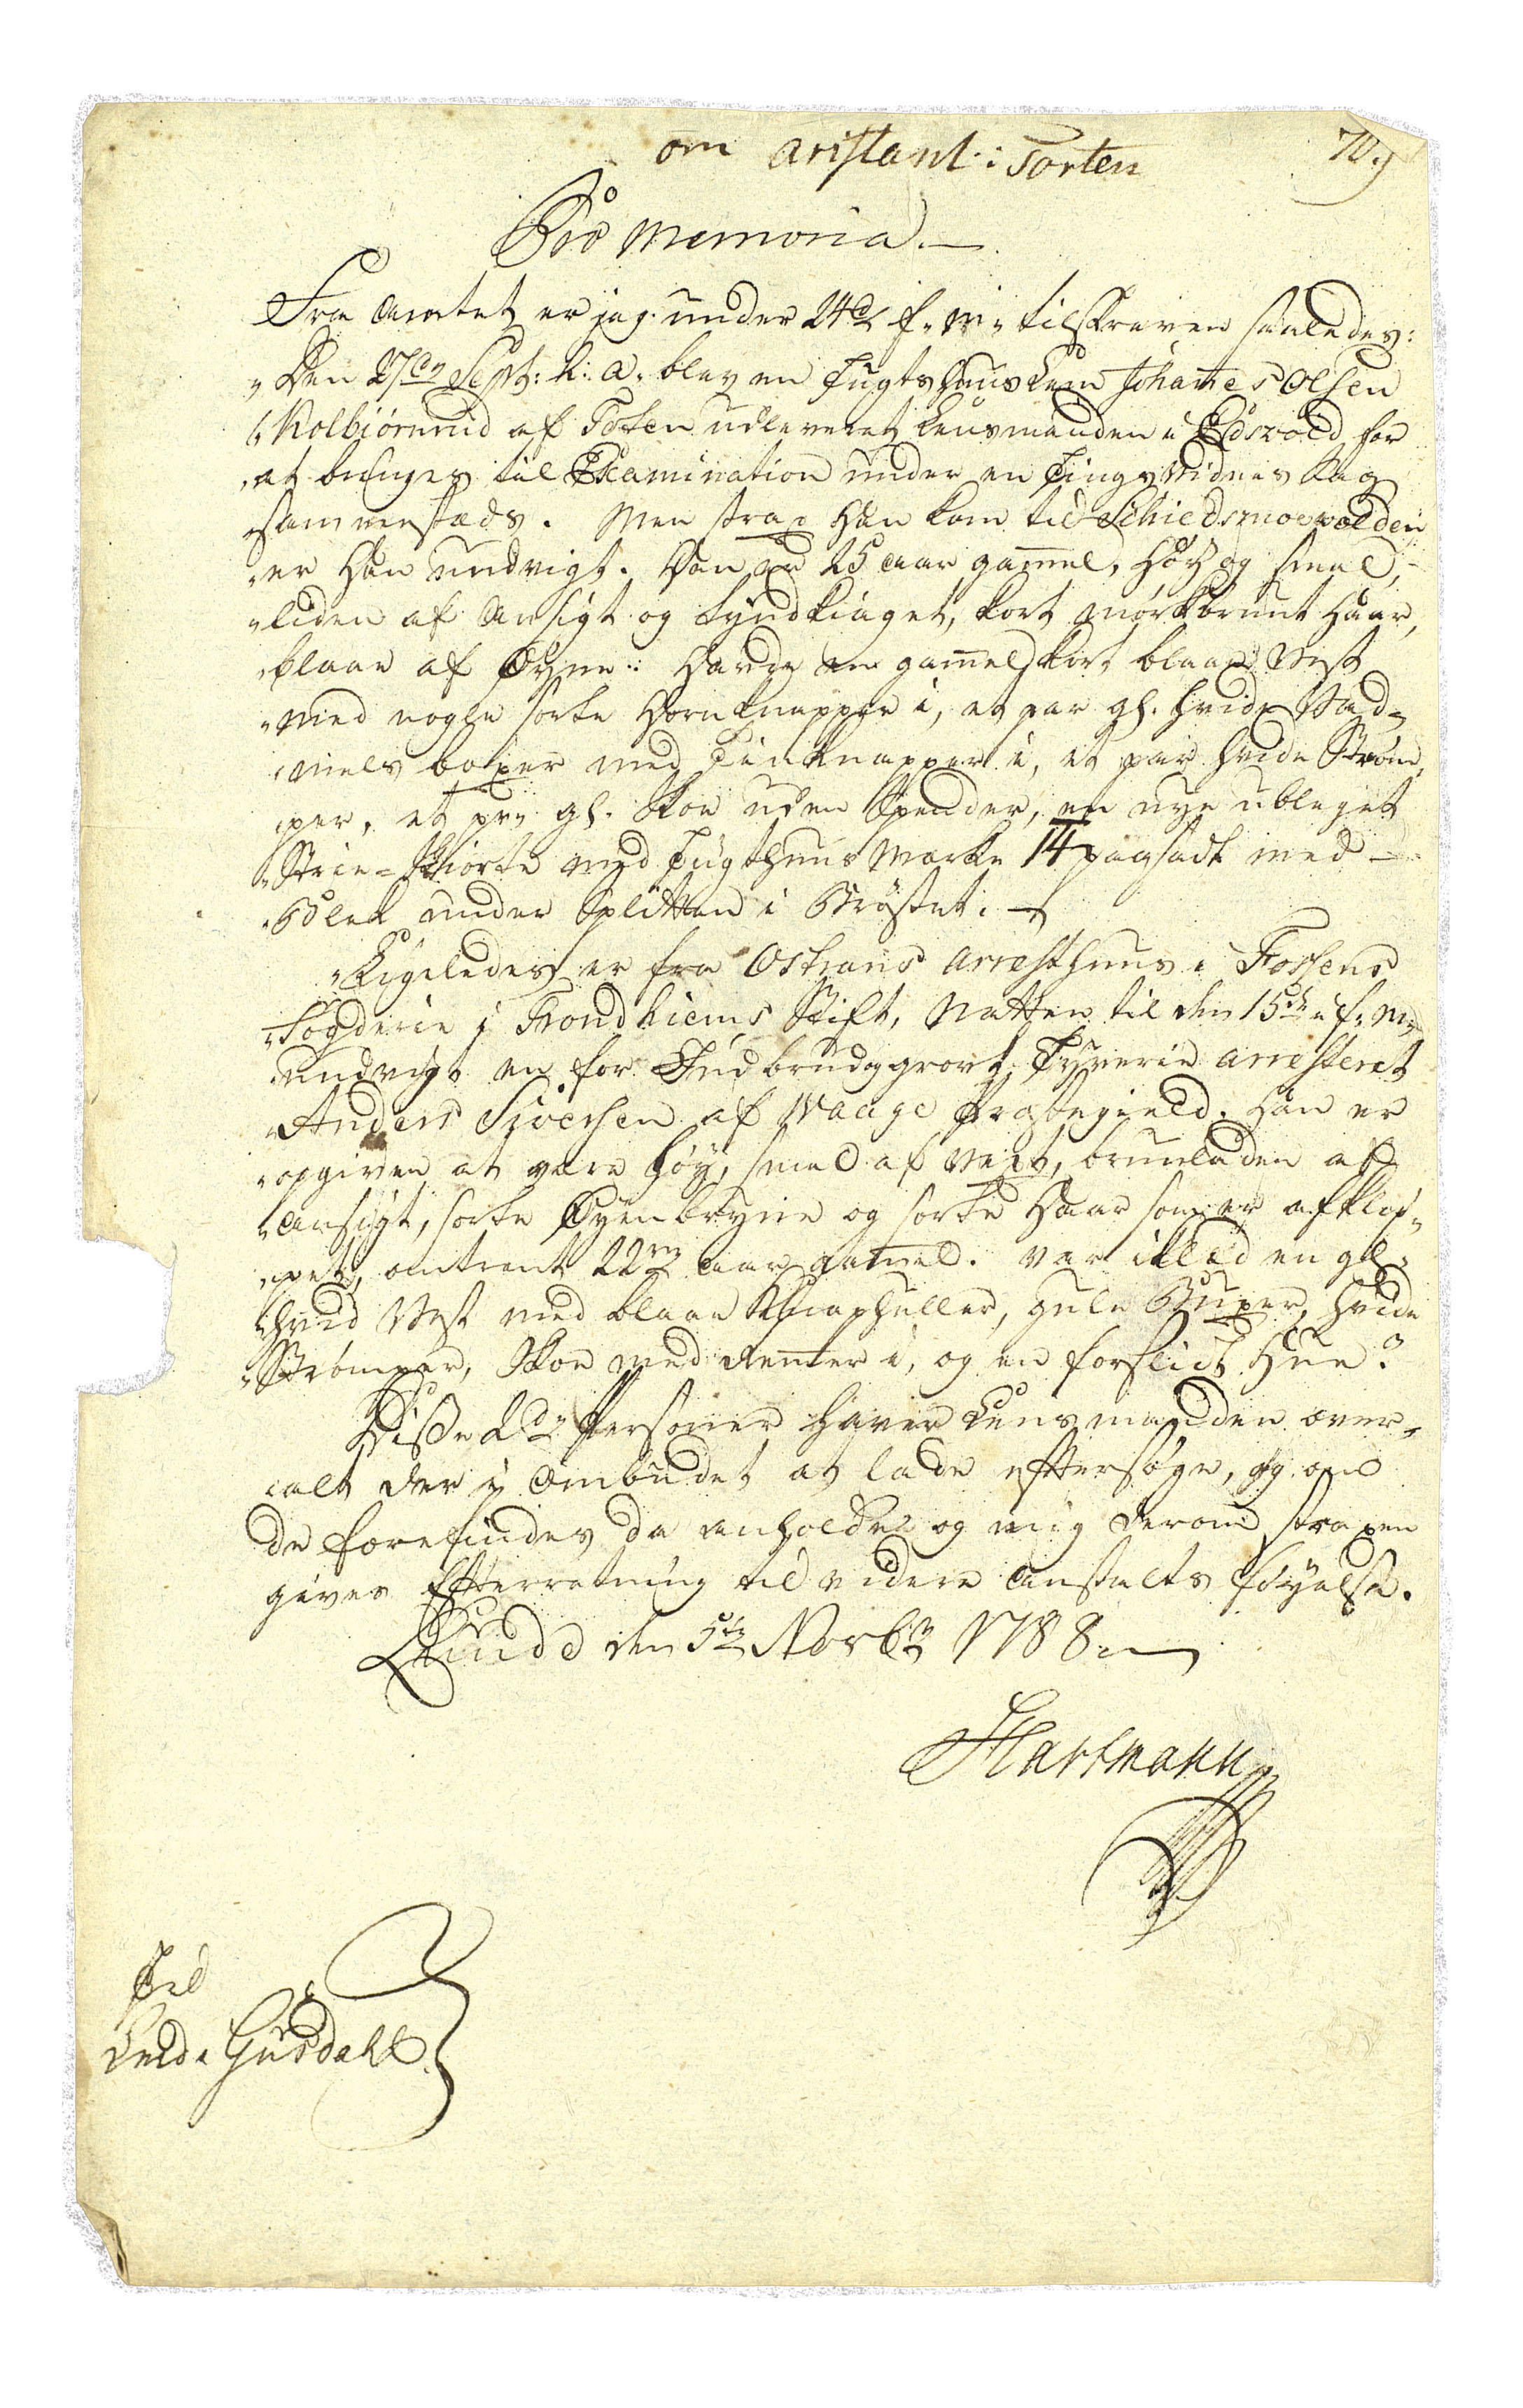 om aristant: i Torten
70.
Pro Memoria.
Fra Amtet er jeg under 24de f. M. tilskreven saaledes:
"Den 27de Sept: h: a. blev en Tugthuus Lem Johannes Olsen
"Kolbiørnrud af Toten udleveret Lensmanden i Eidsvold for
"at bringes til Examination under en Tings Vidnes Sag
"sammestæds. Men strax Han kom til Schiedsmoevolden
"er Han undvigt. Han er 25 aar gamel, høy og smal,
"liden af Ansigt og tyndkiaget, kort mørkbrunt Haar,
"blaae af Øyne: Havde en gamel kort blaae Vest
"med nogle sorte Hornknapper i, et par gl. hvide Vad=
"mels boxer med Tinknapper i, et par hvide Strøm
"per, et par gl. Skoe uden Spender, en nye ubleget
"Strie=Skiorte med Tugthuus Mærke 14 paasadt med
"Bølek under Splitten i Brøstet.
"Ligeledes er fra Ostraads Arresthuus i Fossens
"Fogderie i Trondhiems Stift, Natten til den 15de f. M.
"undvigt en for Indbrud og grovt Tyverie arresteret
"Anders Siversen af Waage Præstegield. Han er
"opgiven at være høy, smal af Vext, bruunladen af
"Ansigt, sorte Øyenbryne og sorte Haar som er afklip=
"pet, omtrent 22 aar gamel. var iklæd en gl.
"hvid Vest med blaae Knaphuller, gule Buxer, hvide
"Strømper, Skoe med Remer i, og en forslidt Hue?
Disse 2de Personer haver Lensmanden over=
alt der i Ombudet at lade eftersøge, og om
de forefindes da anholdes og mig derom straxen
gives Efterretning til videre Anstalts føyelse.
Lunde den 5te Novbr 1788
Hartmann
Til
Lensmd. Gusdahl